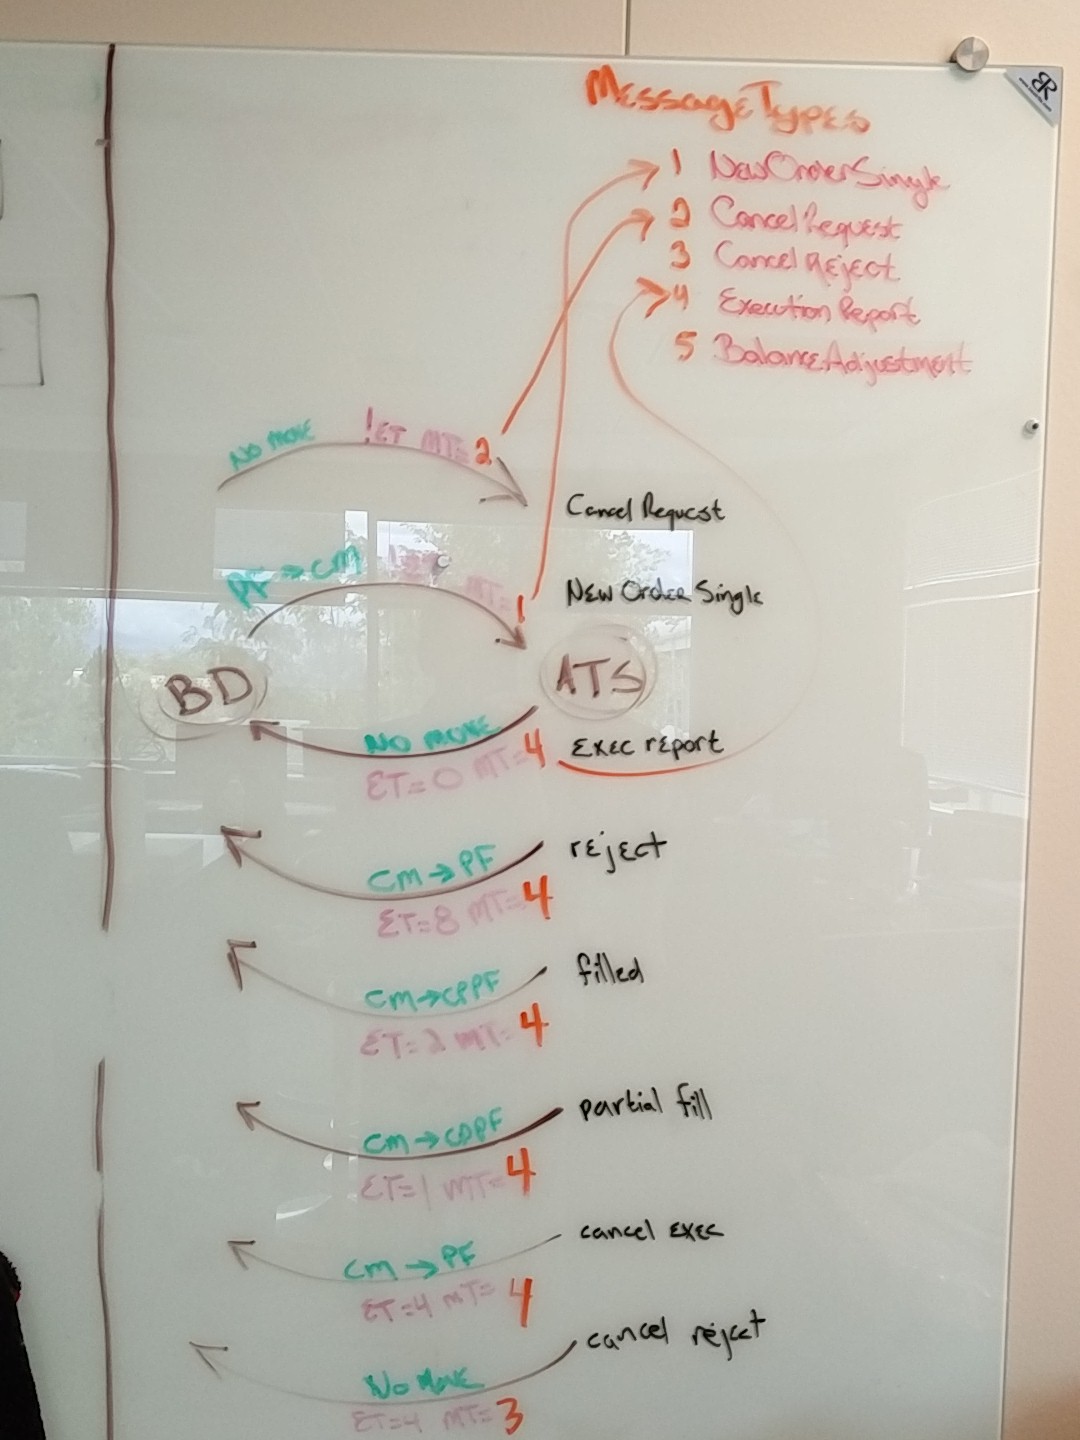 MessageTypes
1 NewOrderSingle
2 CancelRequest
3 CancelReject
4 Execution Report
5 BalanceAdjustment
NO MOVE !ET MT=2
Cancel Request
PF→CM !ET MT=1
New Order Single
BD
ATS
NO MOVE
Exec report
ET=0 MT=4
reject
CM→PF
ET=8 MT=4
filled
CM→CPPF
ET=2 MT=4
partial fill
CM→CPPF
ET=1 MT=4
cancel exec
CM→PF
ET=4 MT=4
cancel reject
No Move
ET=4 MT=3